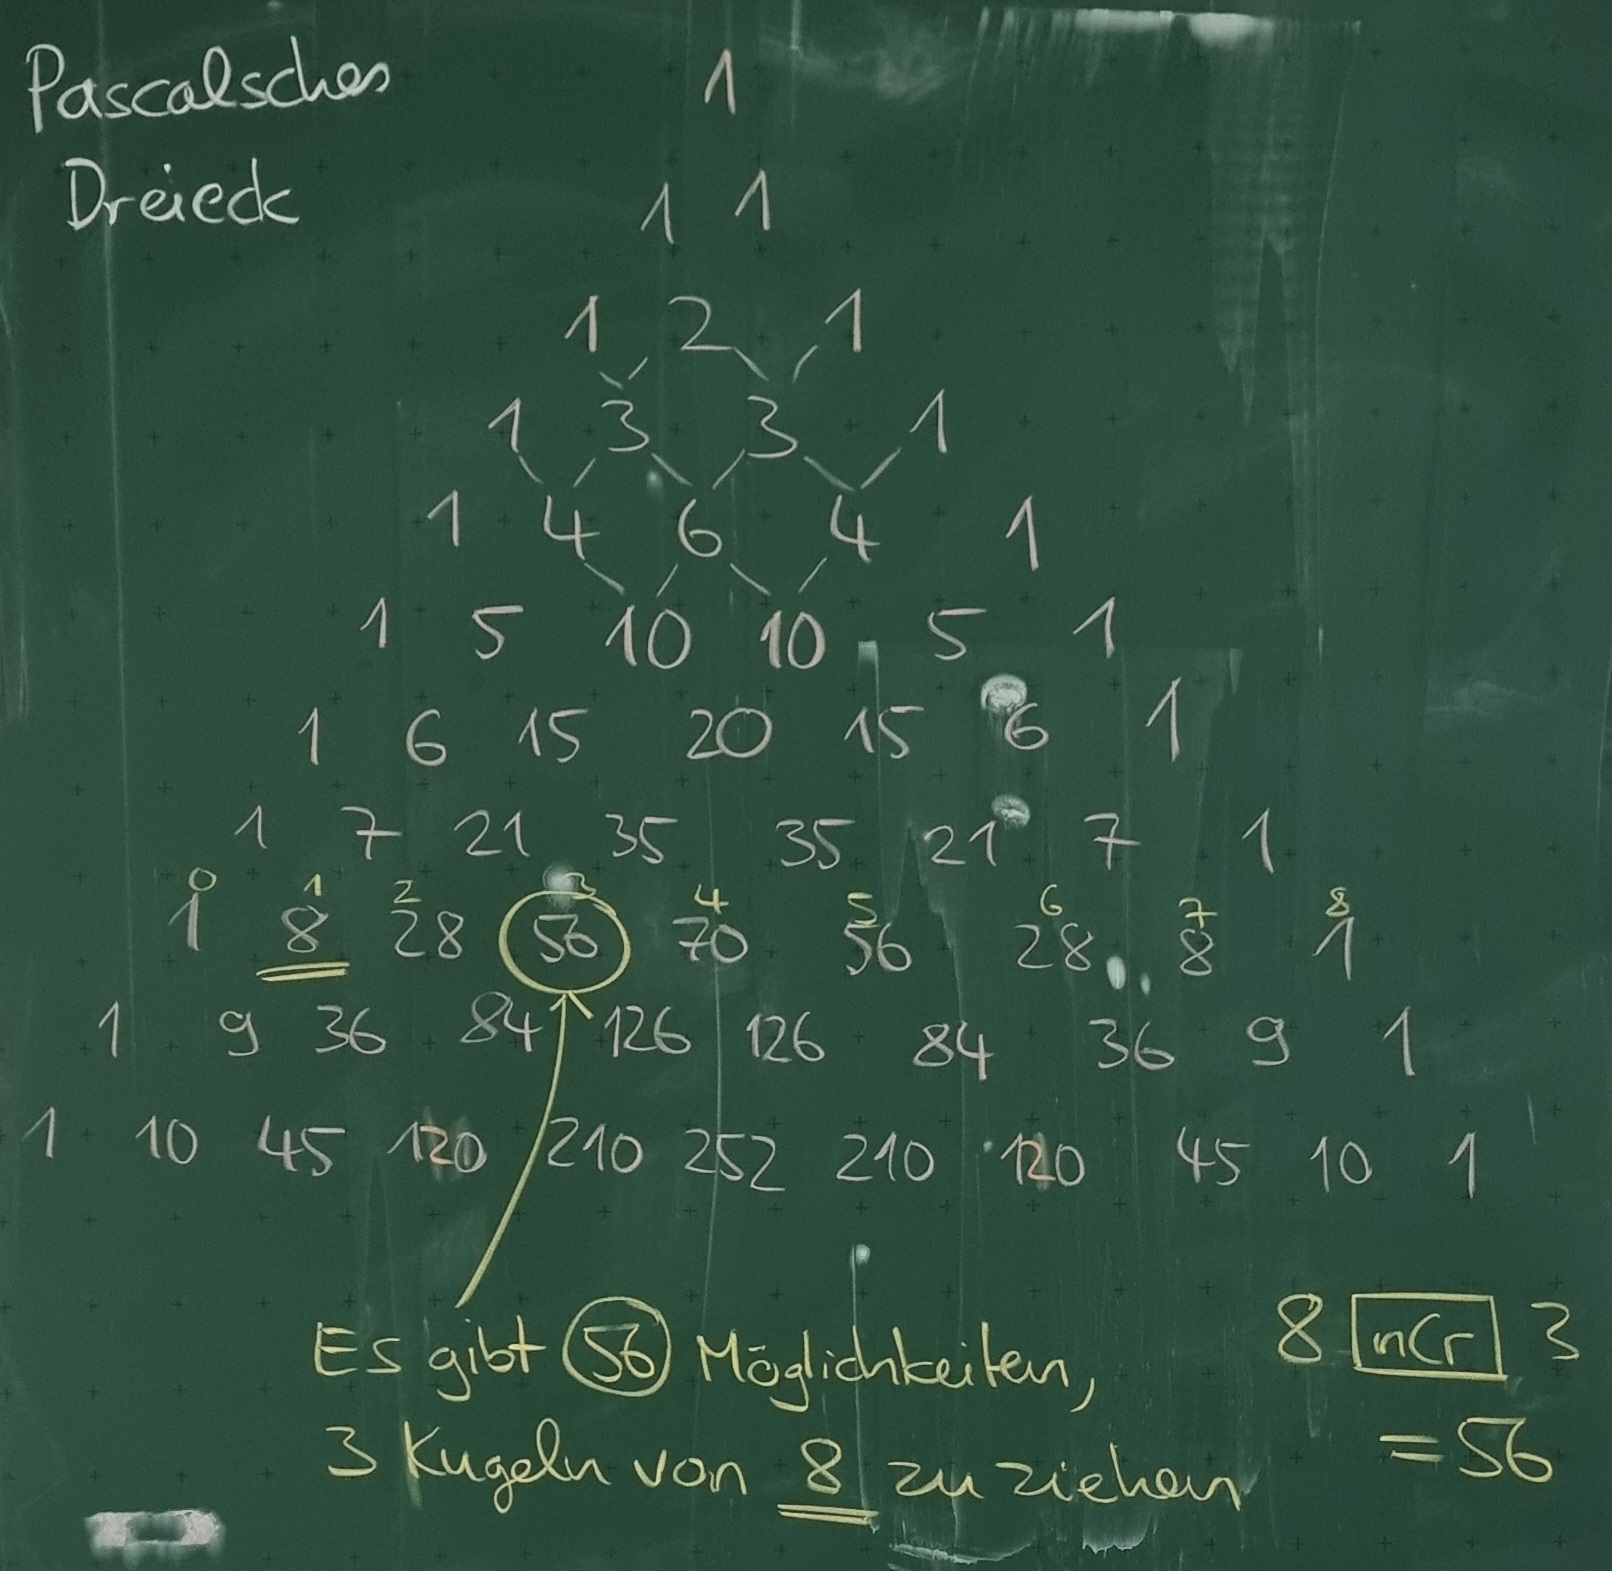 Pascalsches
Dreieck
1
1 1
1 2 1
1 3 3 1
1 4 6 4 1
1 5 10 10 5 1
1 6 15 20 15 6 1
1 7 21 35 35 21 7 1
0 1 2 3 4 5 6 7 8
1 8 28 56 70 56 28 8 1
1 9 36 84 126 126 84 36 9 1
1 10 45 120 210 252 210 120 45 10 1
Es gibt 56 Möglichkeiten,
3 Kugeln von 8 zu ziehen
8 nCr 3
= 56